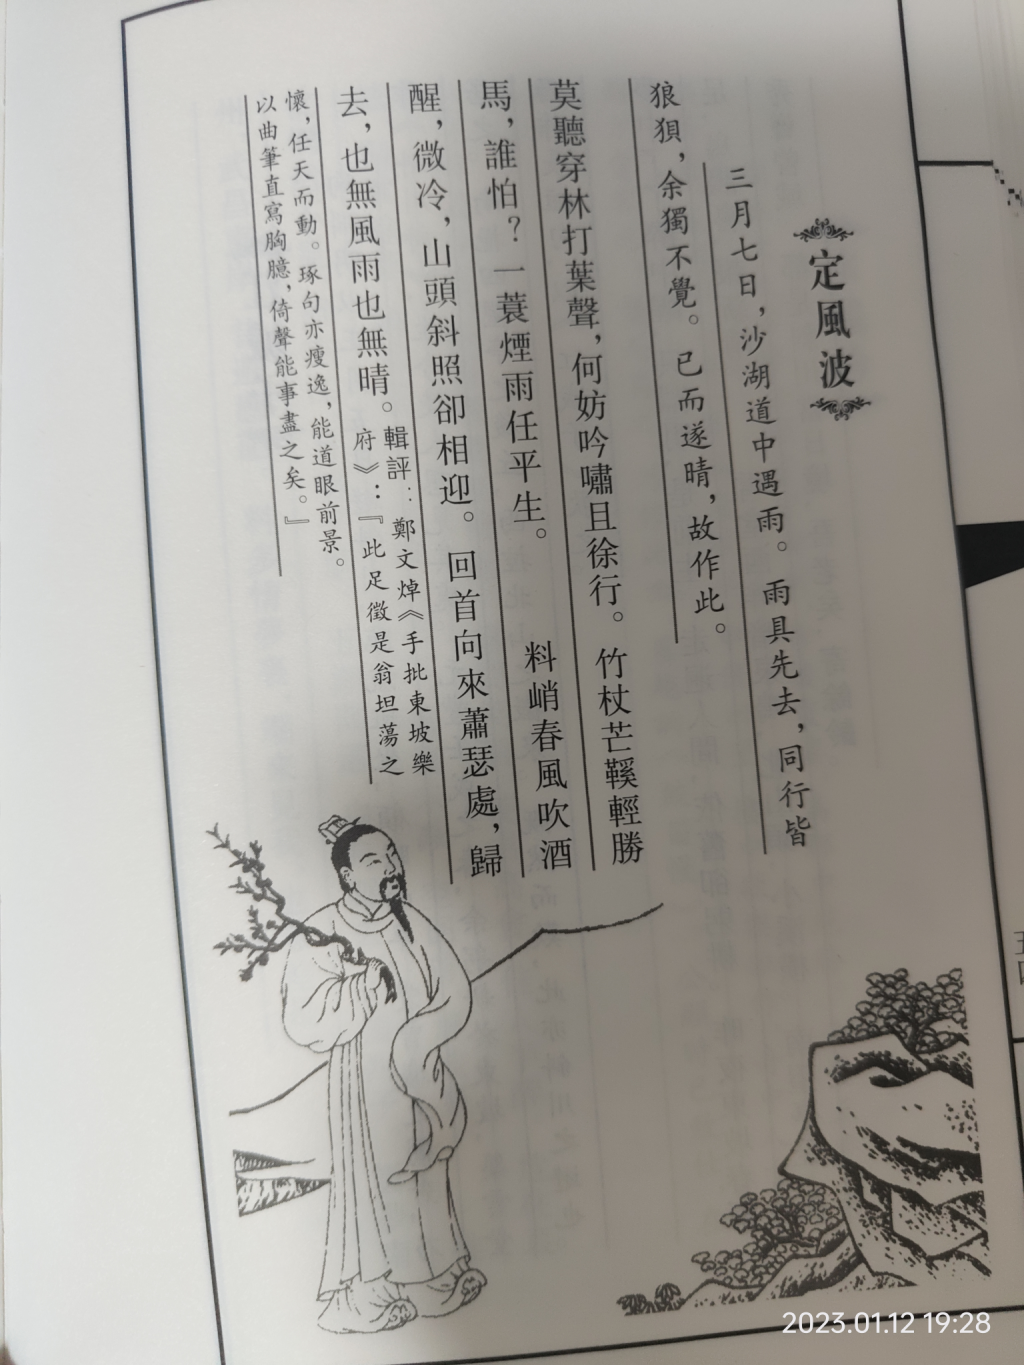 定風波
三月七日，沙湖道中遇雨。雨具先去，同行皆
狼狽，余獨不覺。已而遂晴，故作此。
莫聽穿林打葉聲，何妨吟嘯且徐行。竹杖芒鞵輕勝
馬，誰怕？一蓑煙雨任平生。　料峭春風吹酒
醒，微冷，山頭斜照卻相迎。回首向來蕭瑟處，歸
去，也無風雨也無晴。輯評：鄭文焯《手批東坡樂
府》：『此足徵是翁坦蕩之
懷，任天而動。琢句亦瘦逸，能道眼前景。
以曲筆直寫胸臆，倚聲能事盡之矣。』
2023.01.12 19:28